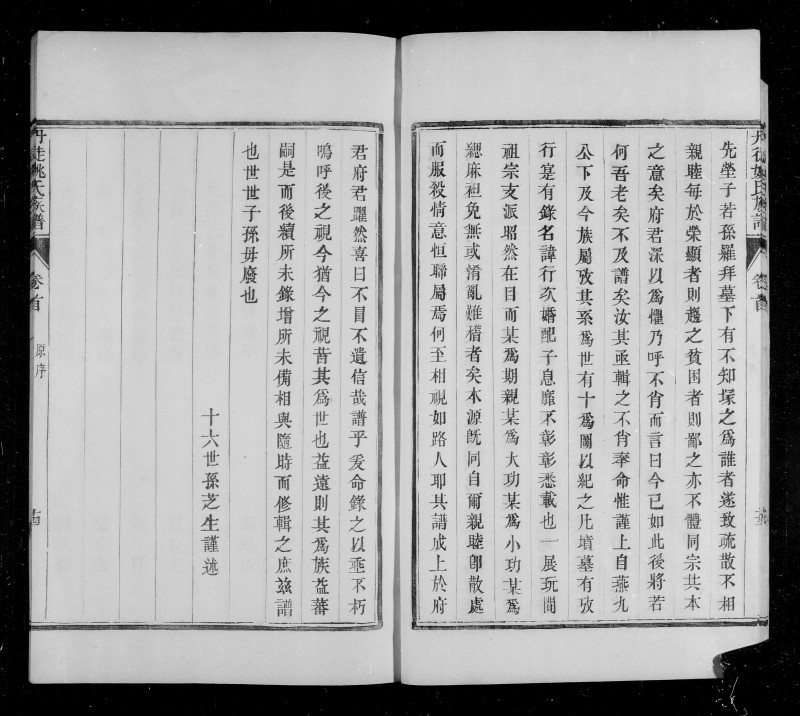 先塋子若孫羅拜墓下有不知塚之爲誰者遂致疏散不相
親睦每於榮顯者則趨之貧困者則鄙之亦不體同宗共本
之意矣府君深以爲懼乃呼不肖而言曰今已如此後將若
何吾老矣不及譜矣汝其亟輯之不肖奉命惟謹上自燕九
公下及今族屬攷其系爲世有十爲圖以紀之凡墳墓有攷
行寔有錄名諱行次婚配子息靡不彰彰悉載也一展玩間
祖宗支派昭然在目而某爲期親某爲大功某爲小功某爲
緦麻袒免無或淆亂難稽者矣本源旣同自爾親睦卽散處
而服殺情意恒聯屬焉何至相視如路人耶其譜成上於府
丹徒姚氏族譜
卷首
君府君躍然喜曰不冒不遺信哉譜乎爰命錄之以垂不朽
嗚呼後之視今猶今之視昔其爲世也益遠則其爲族益蕃
嗣是而後續所未錄增所未備相與隨時而修輯之庶玆譜
也世世子孫毋廢也
十六世孫芝生謹述
丹徒姚氏族譜
卷首
原序